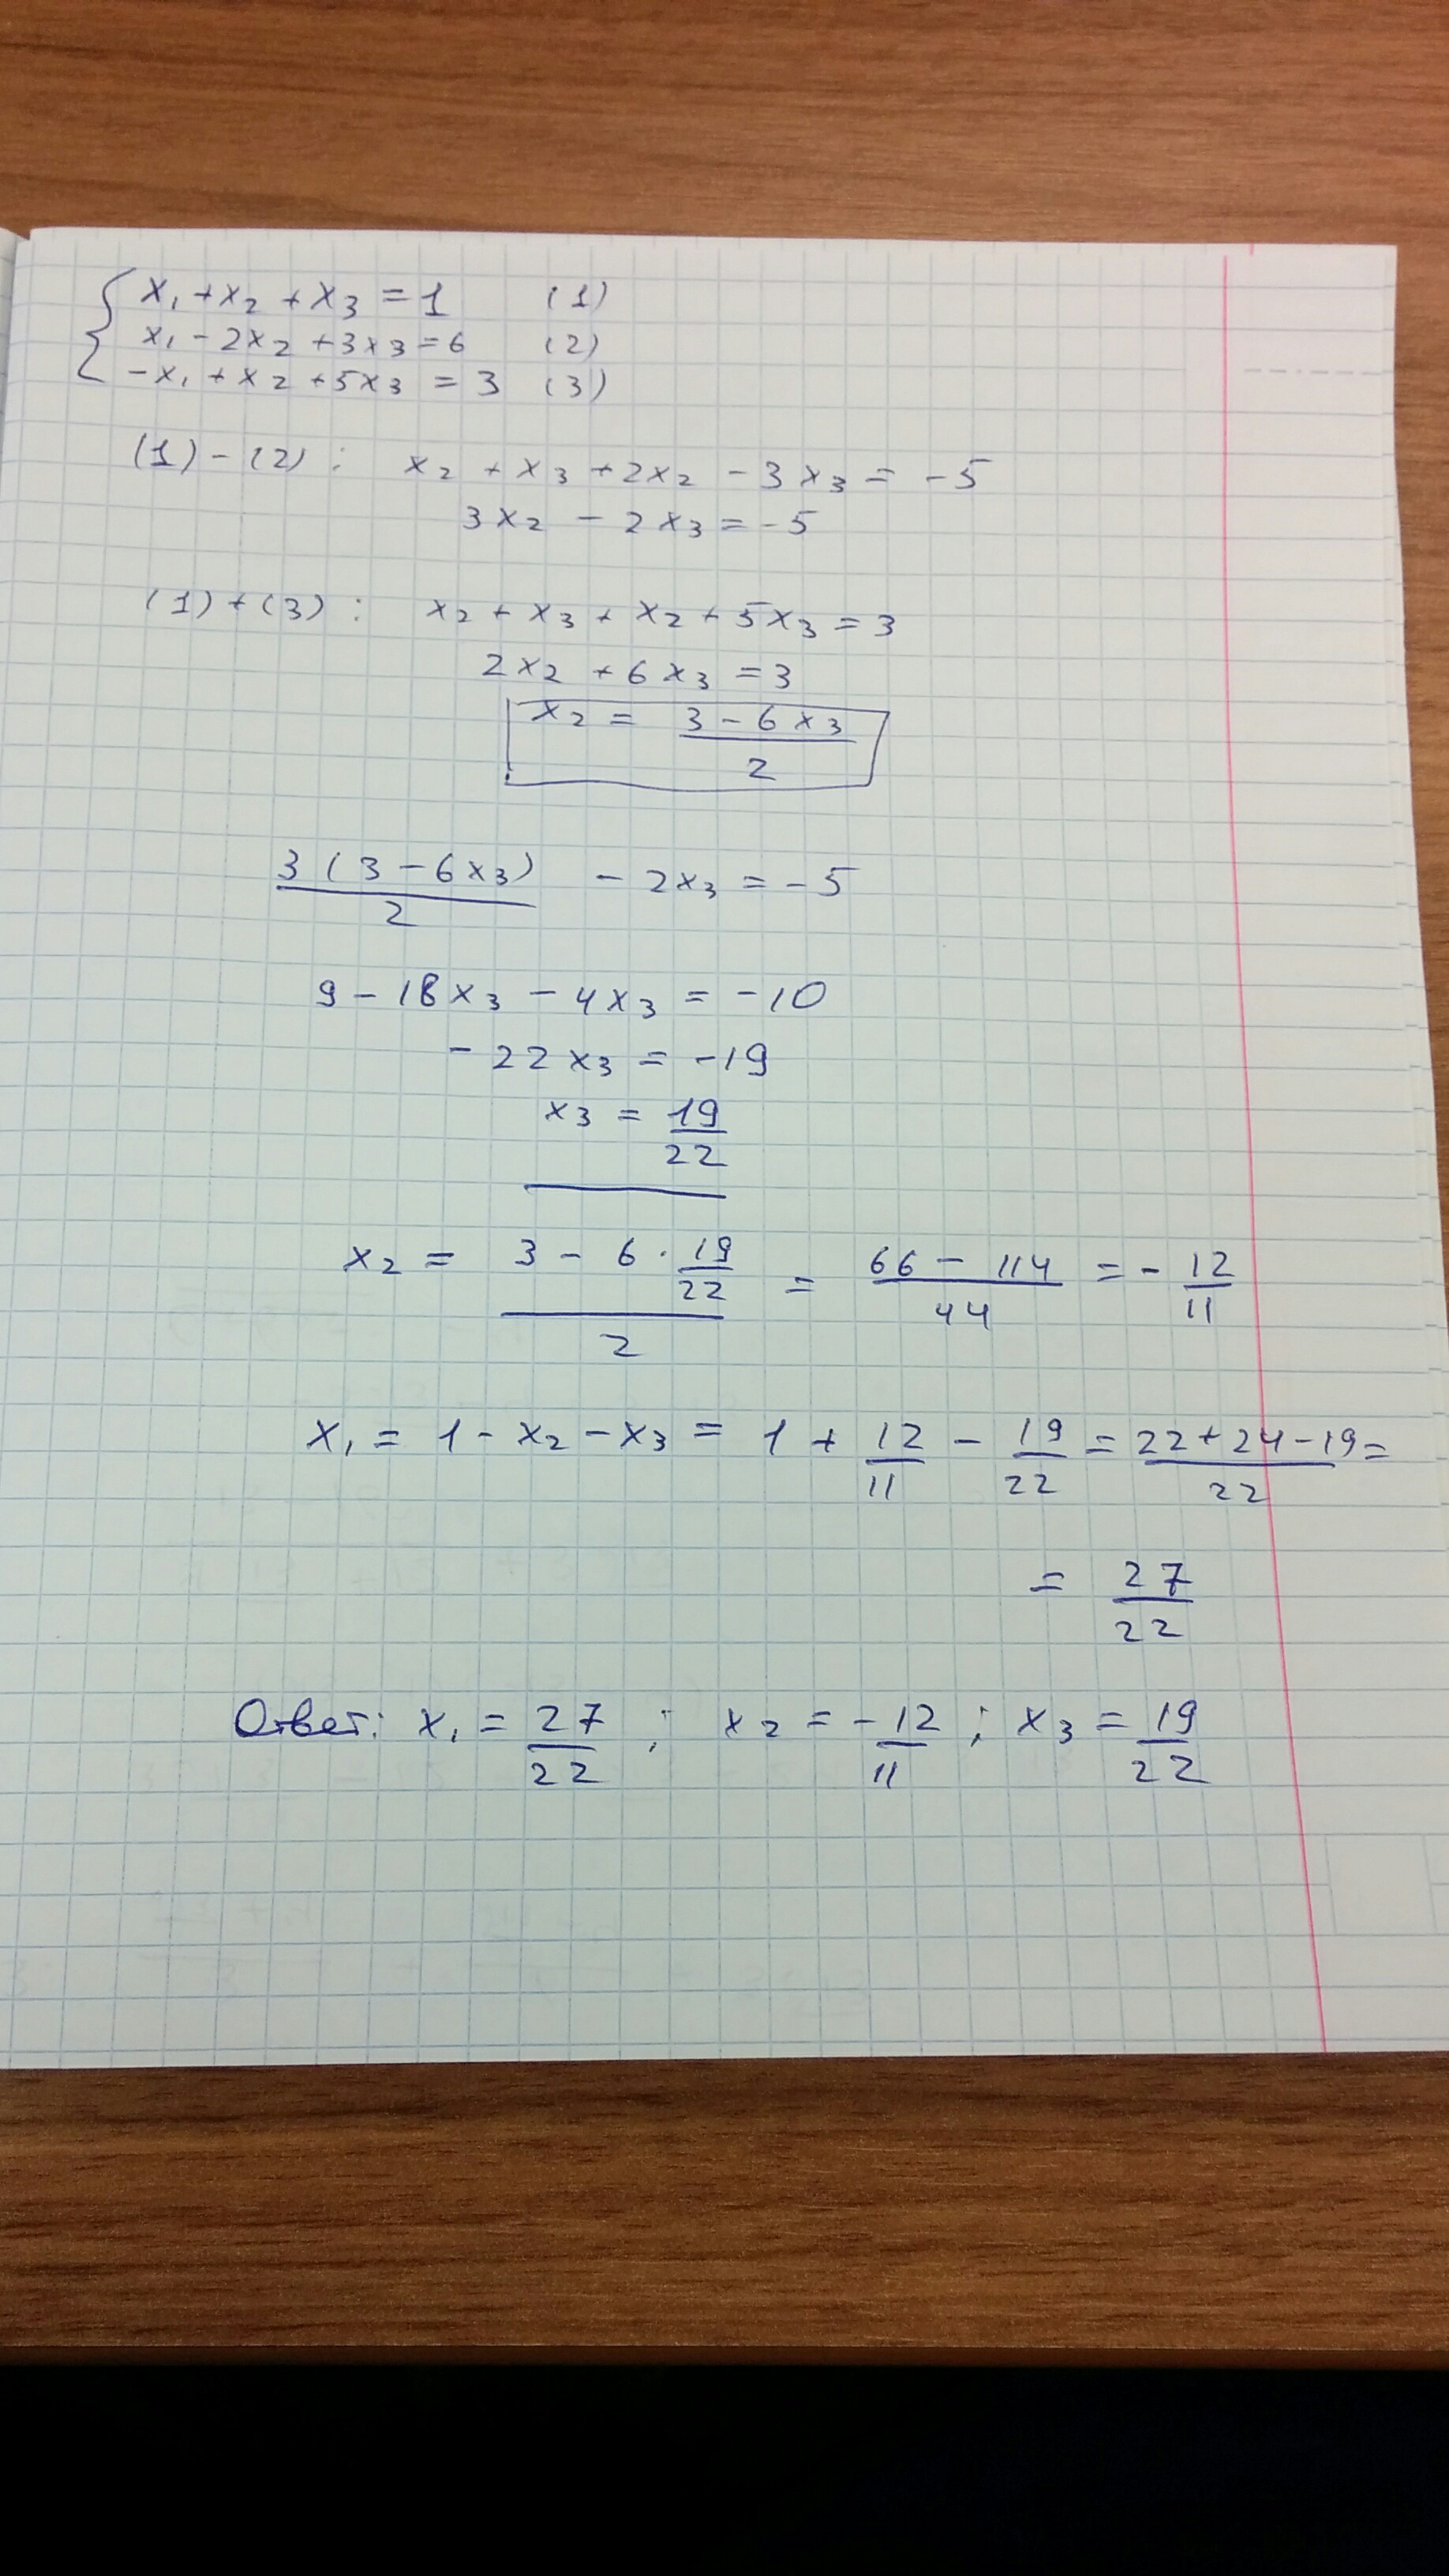 x₁ + x₂ + x₃ = 1 (1)
x₁ - 2x₂ + 3x₃ = 6 (2)
-x₁ + x₂ + 5x₃ = 3 (3)
(1) - (2) : x₂ + x₃ + 2x₂ - 3x₃ = -5
3x₂ - 2x₃ = -5
(1) + (3) : x₂ + x₃ + x₂ + 5x₃ = 3
2x₂ + 6x₃ = 3
x₂ = (3 - 6x₃)/2
3(3 - 6x₃)/2 - 2x₃ = -5
9 - 18x₃ - 4x₃ = -10
-22x₃ = -19
x₃ = 19/22
x₂ = (3 - 6 · 19/22)/2 = (66 - 114)/44 = - 12/11
x₁ = 1 - x₂ - x₃ = 1 + 12/11 - 19/22 = (22 + 24 - 19)/22 =
= 27/22
Ответ: x₁ = 27/22 ; x₂ = -12/11 ; x₃ = 19/22